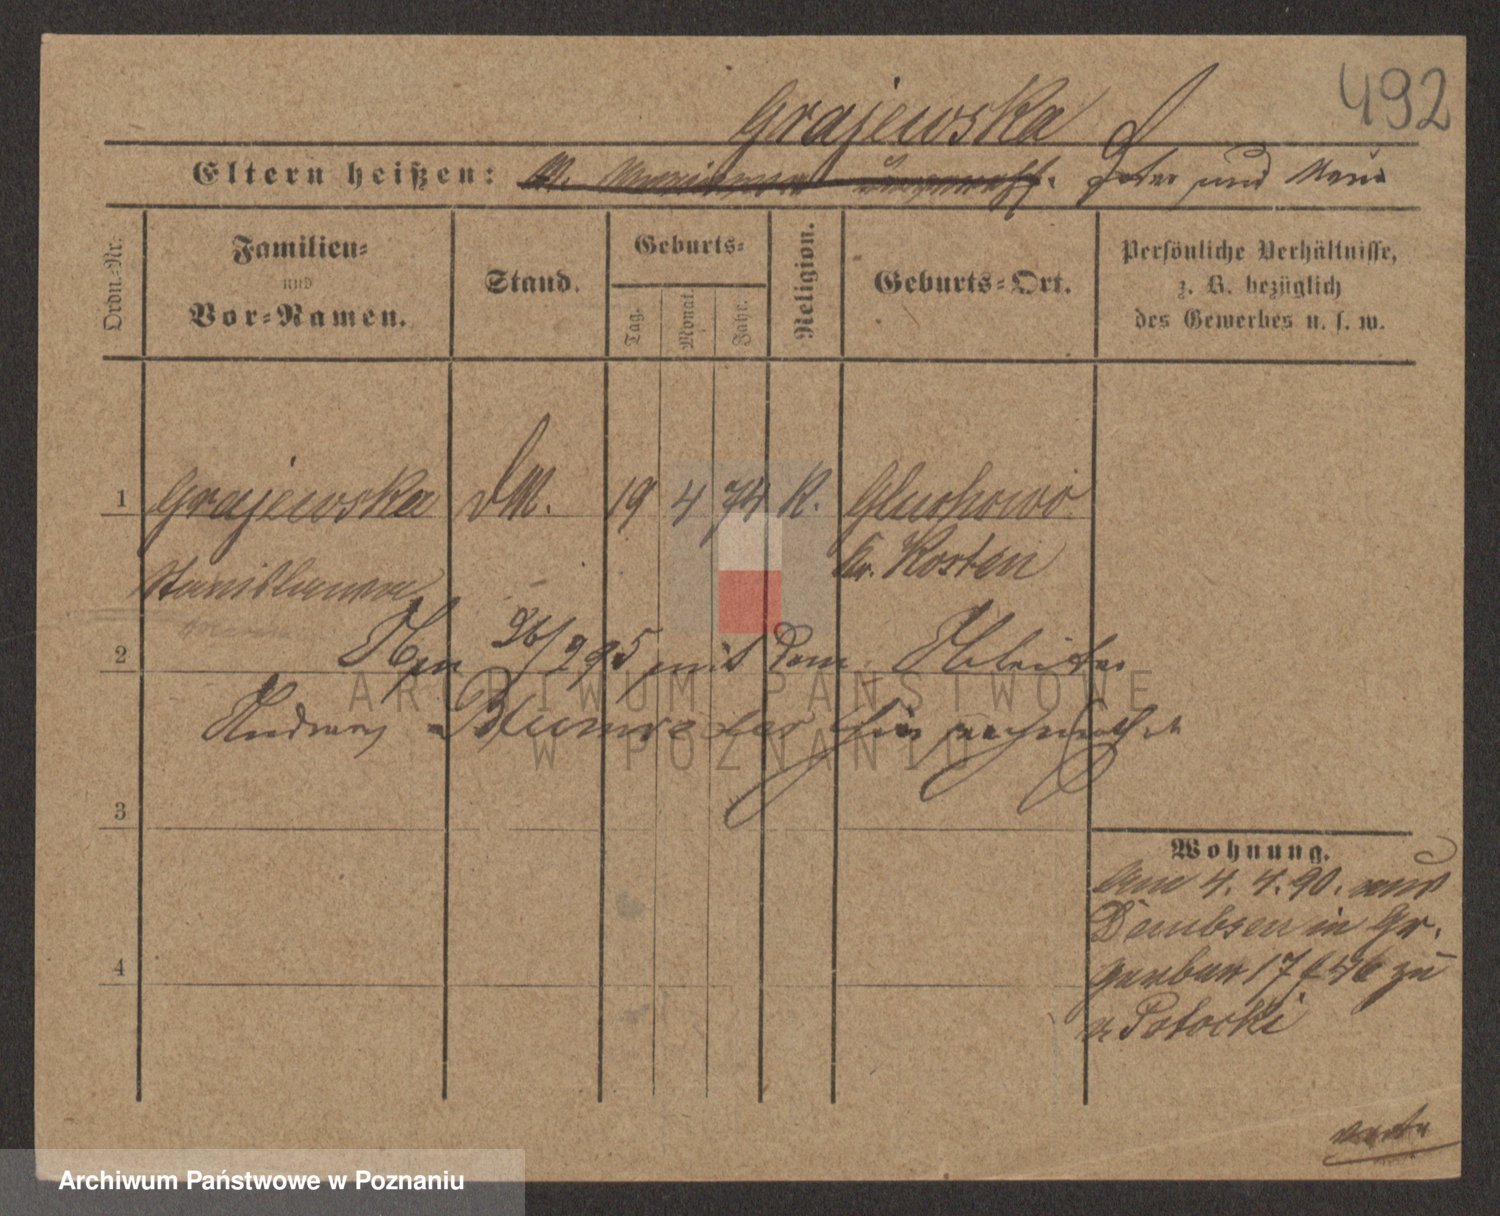 492
Grajewska
Eltern heißen: Peter und
Ordn.-Nr.
Familien-
und
Vor-Namen.
Stand.
Geburts-
Tag.
Monat
Jahr.
Religion.
Geburts-Ort.
Persönliche Verhältnisse,
z. B. bezüglich
des Gewerbes u. s. w.
1 Grajewska DM. 19 4 74 K. Gluchowo
Stanislawa Kr. Kosten
2 26/9 95 mit dem
Andreas
3
Wohnung.
Am 4. 4. 90. aus
Dembsen in Gr.
Gerber 17 zu
v Potocki
4
verte
ARCHIWUM PAŃSTWOWE
W POZNANIU
Archiwum Państwowe w Poznaniu